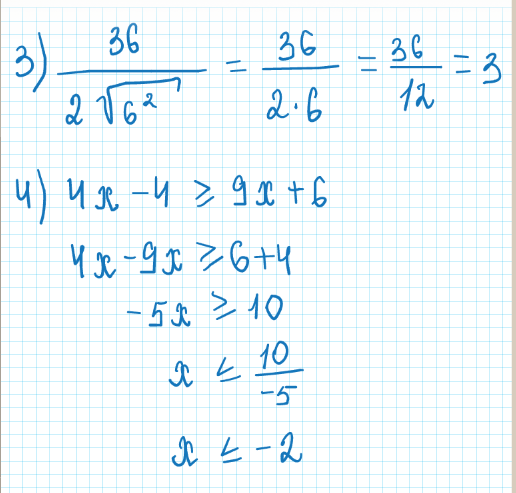 3) 36 / (2 √6²) = 36 / (2 · 6) = 36 / 12 = 3
4) 4x − 4 ≥ 9x + 6
4x − 9x ≥ 6 + 4
−5x ≥ 10
x ≤ 10 / −5
x ≤ −2